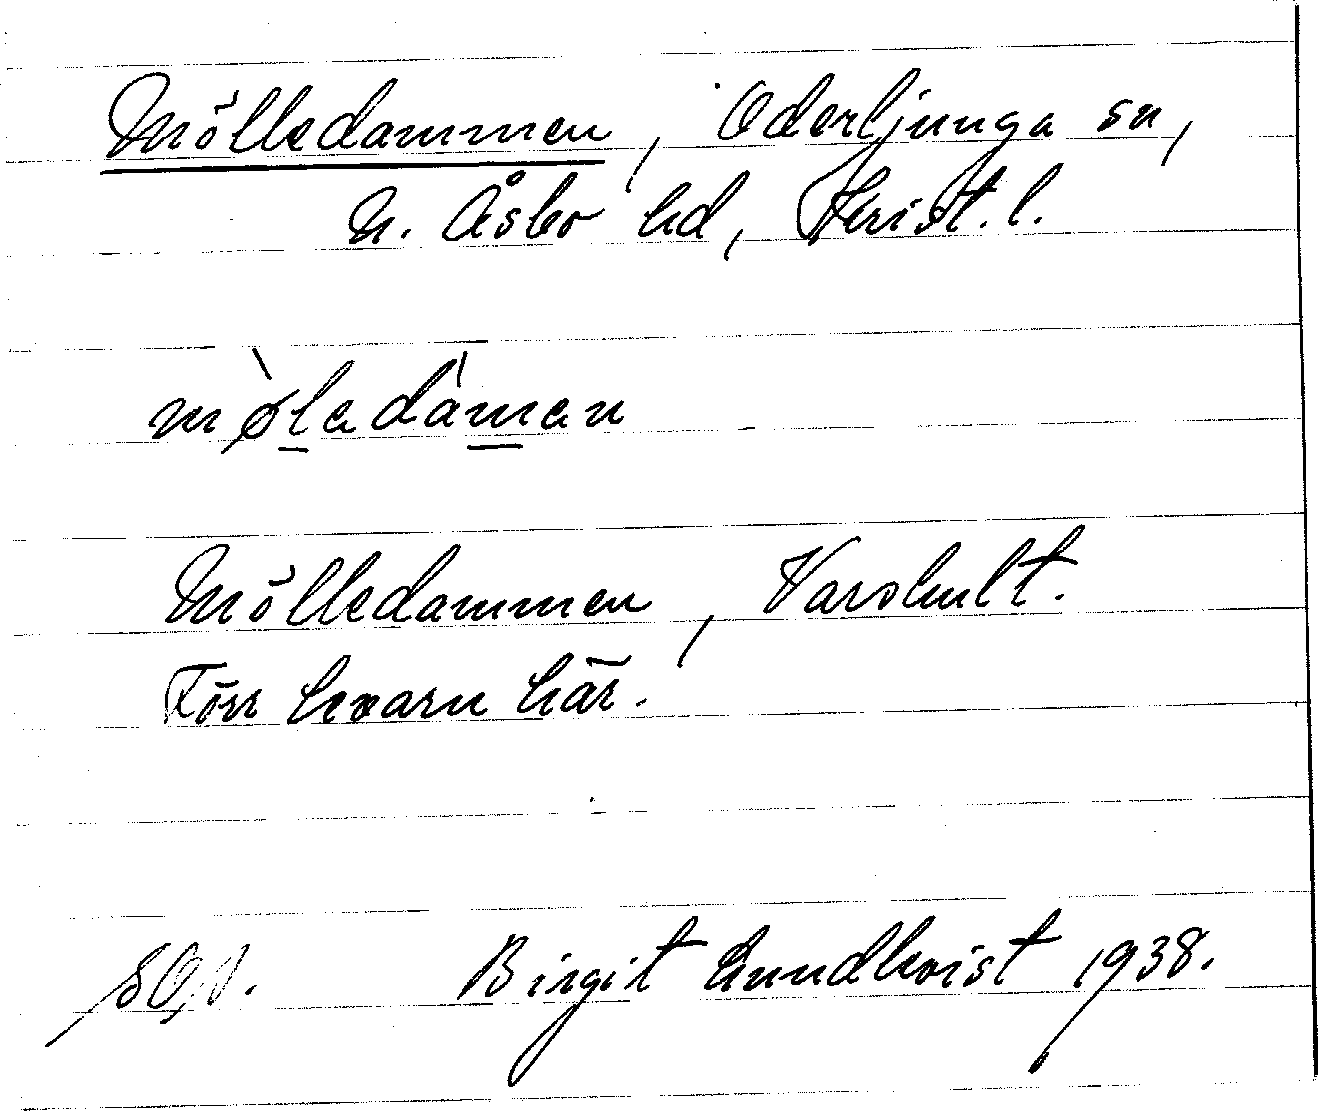 Mölledammen, Oderljunga sn,
N. Åsbo hd, Krist. l.
mø̀ledámen
Mölledammen, Varshult.
Förr kvarn här.
Birgit Lundkvist 1938.